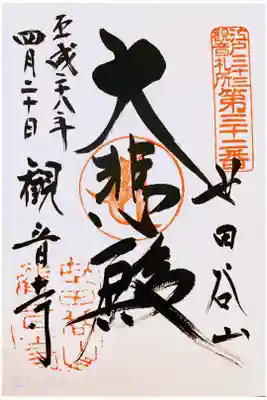 江戸三十三
観音札所
第三十二番
世田谷山
大悲殿
平成二八年
四月二十日
観音寺